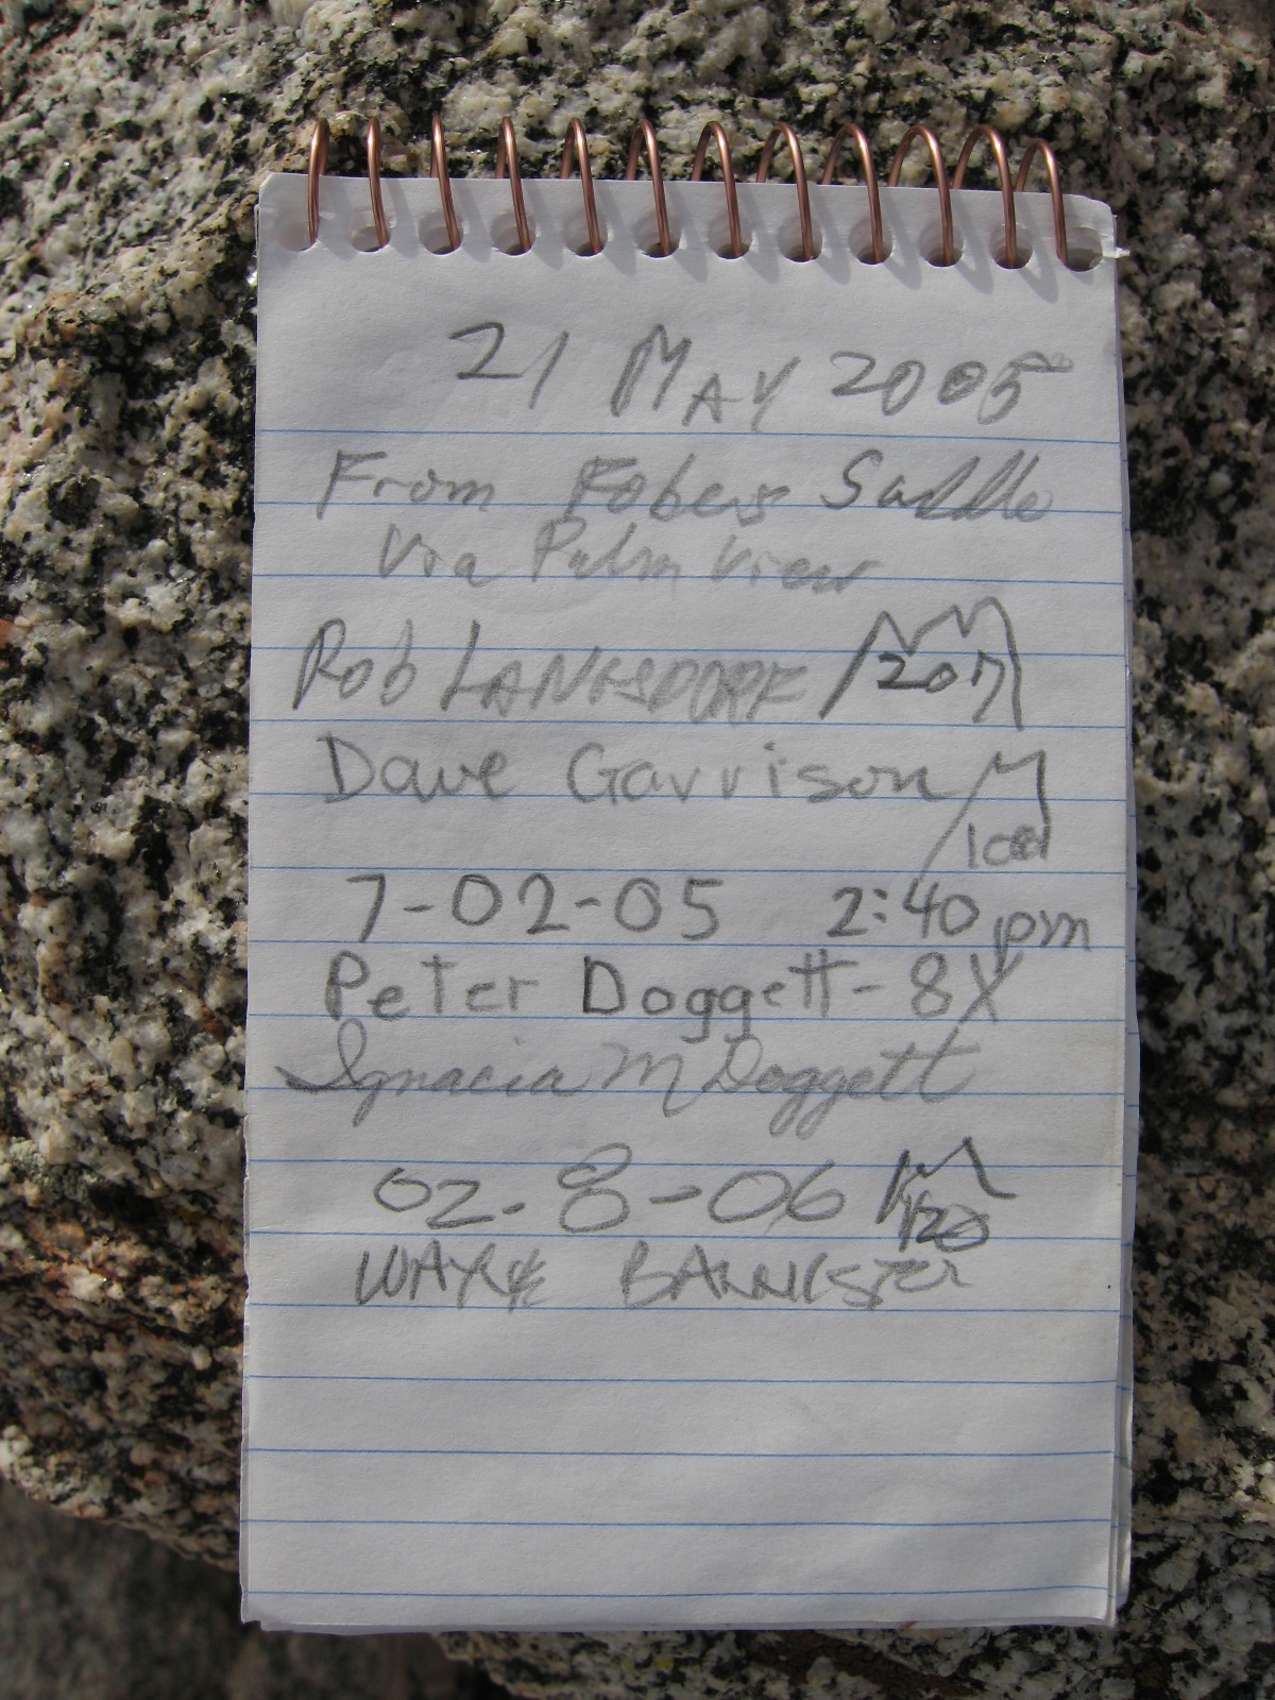 21 MAY 2005
From Fobes Saddle
Via Palm View
Rob LANGSDORF 207
Dave Garrison 100
7-02-05 2:40 pm
Peter Doggett - 8X
Ignacia M Doggett
02-8-06 120
WAYNE BANNISTER